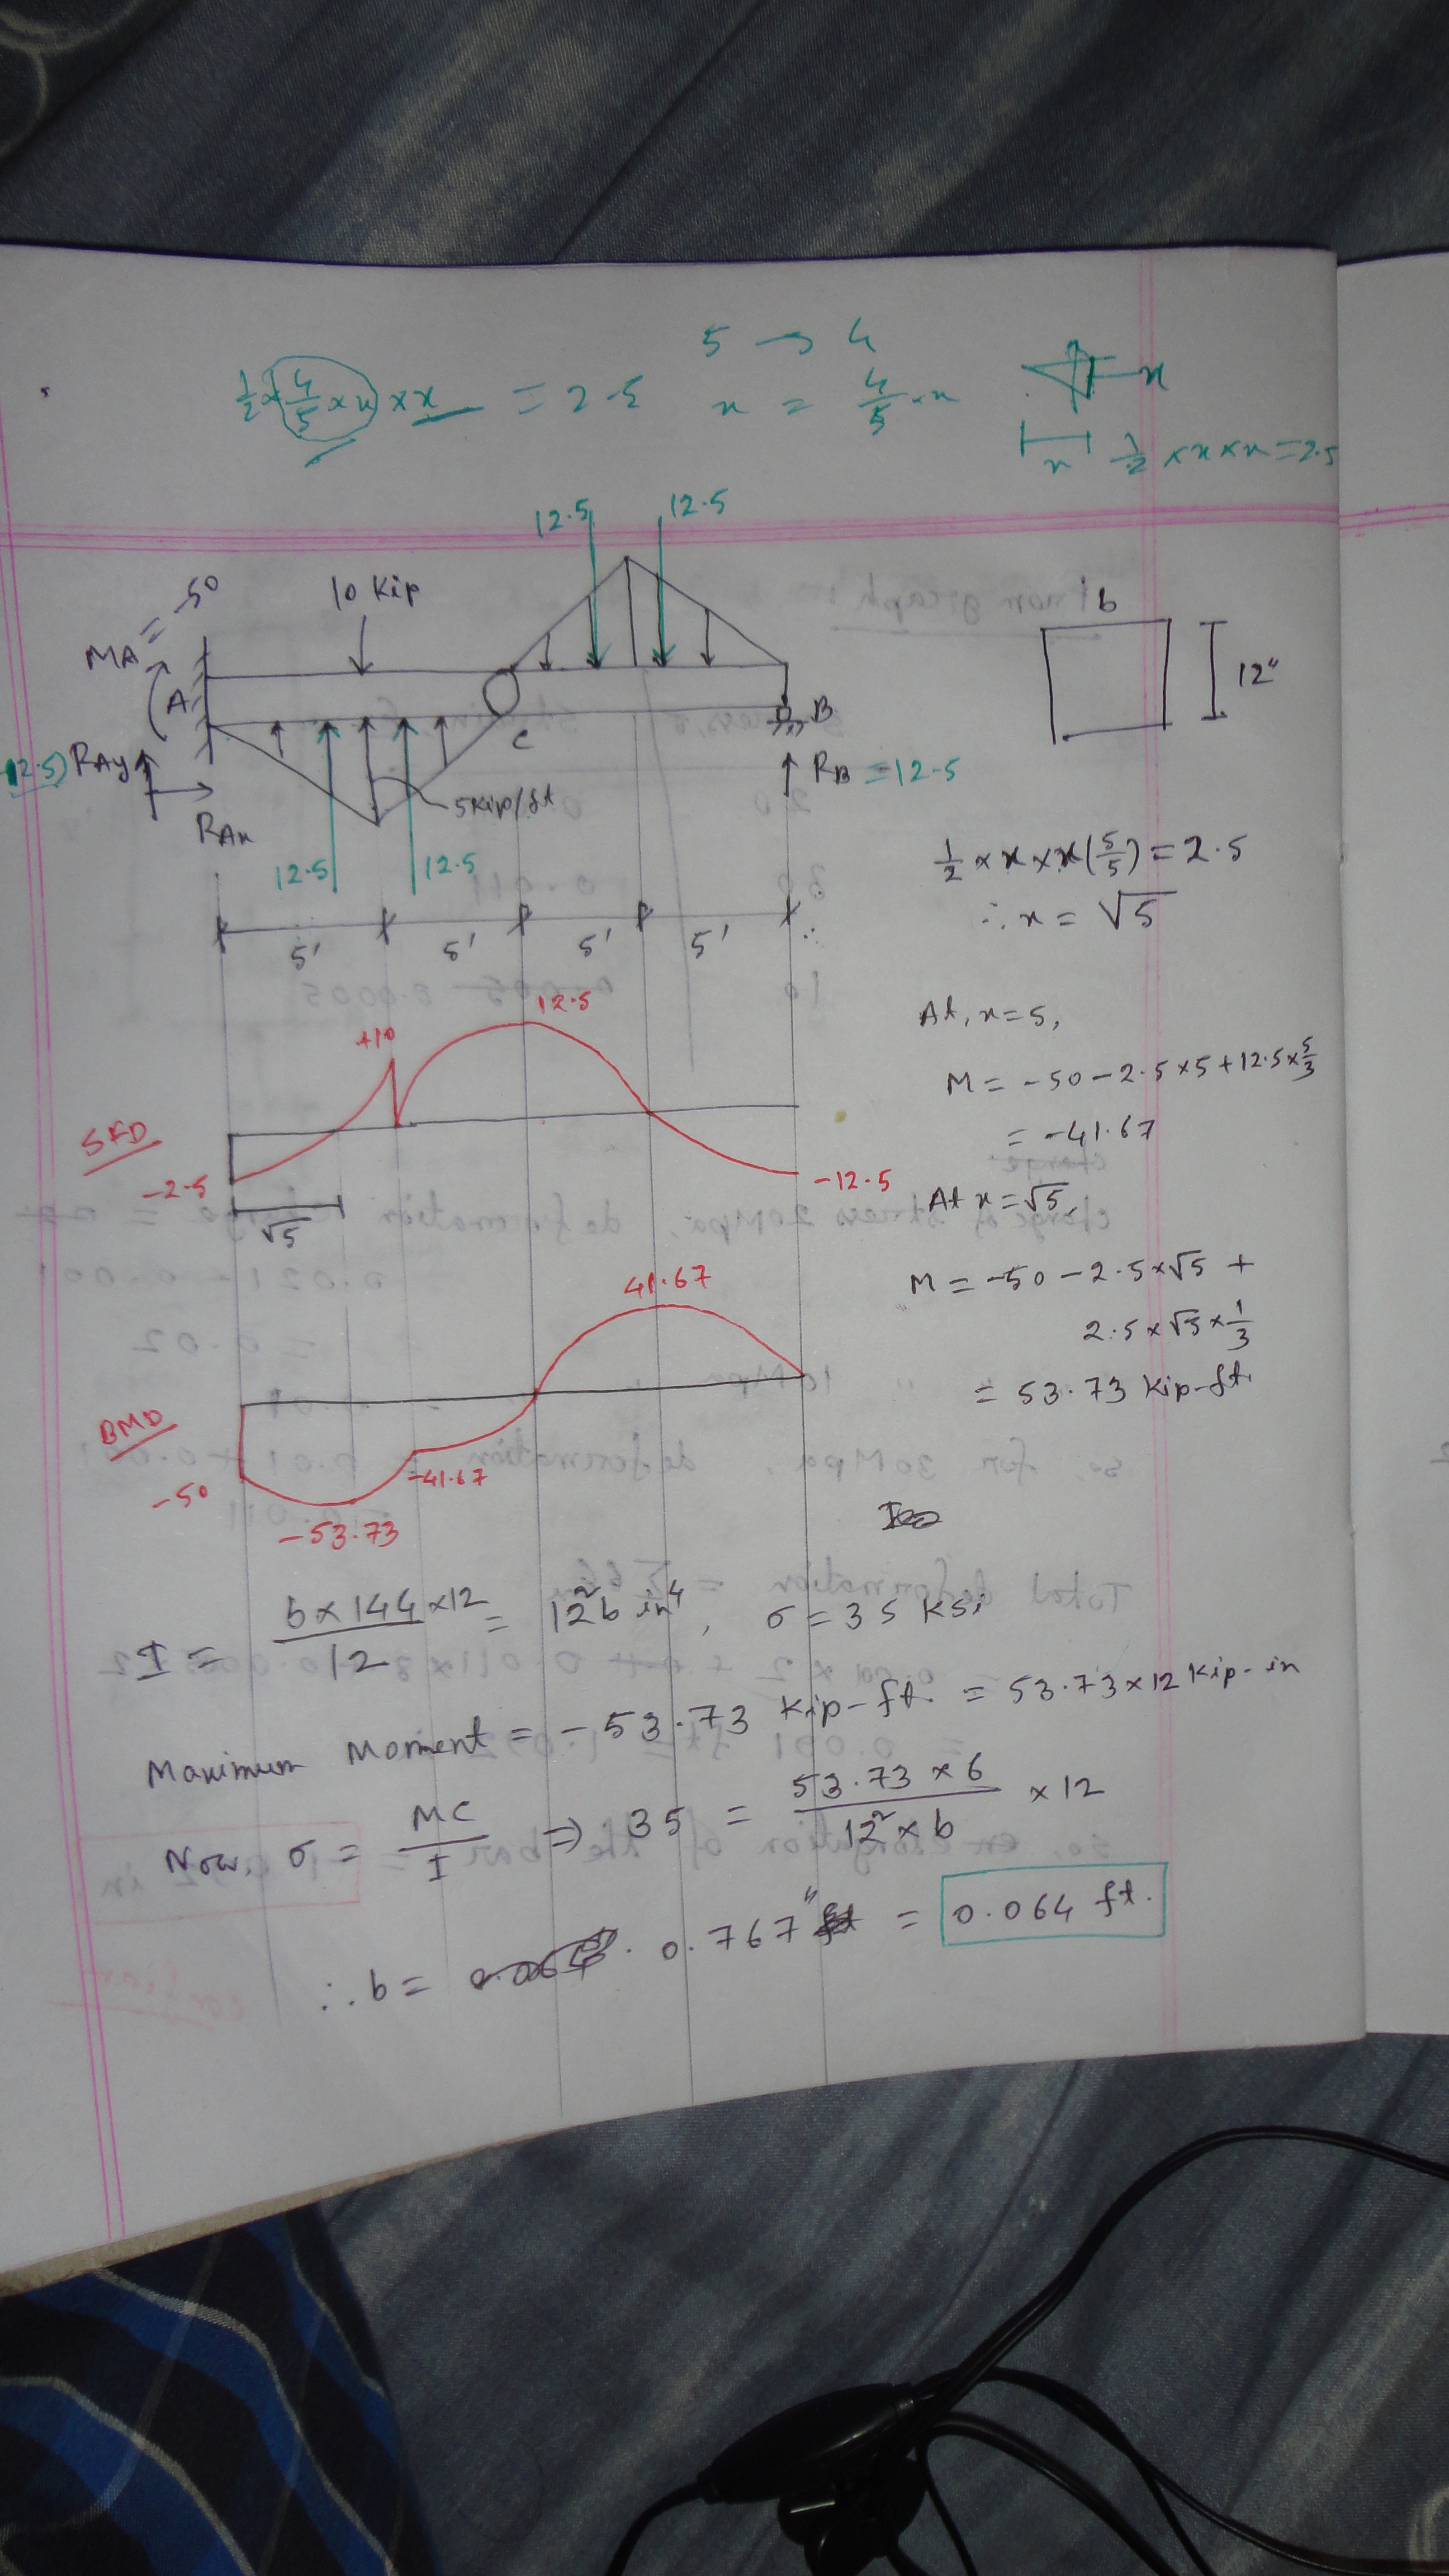 1/2 × 4/5 × x × x = 2.5
5 → 4
x = 4/5 · x
x
x
1/2 × x × x = 2.5
12.5
12.5
10 Kip
MA = -50
A
b
12"
C
B
RAy
RAx
RB = 12.5
5 Kip/ft
12.5
12.5
5'
5'
5'
5'
1/2 × x × x (5/5) = 2.5
∴ x = √5
At, x = 5,
M = -50 - 2.5 × 5 + 12.5 × 5/3
= -41.67
At x = √5,
M = -50 - 2.5 × √5 +
2.5 × √5 × 1/3
= 53.73 Kip-ft.
SFD
+10
12.5
-2.5
√5
-12.5
BMD
41.67
-50
-41.67
-53.73
I = b × 144 × 12 / 12 = 12² b in⁴, σ = 35 Ksi
Maximum Moment = -53.73 Kip-ft. = 53.73 × 12 Kip-in
Now, σ = MC/I ⇒ 35 = 53.73 × 6 / 12² × b × 12
∴ b = 0.767" = 0.064 ft.